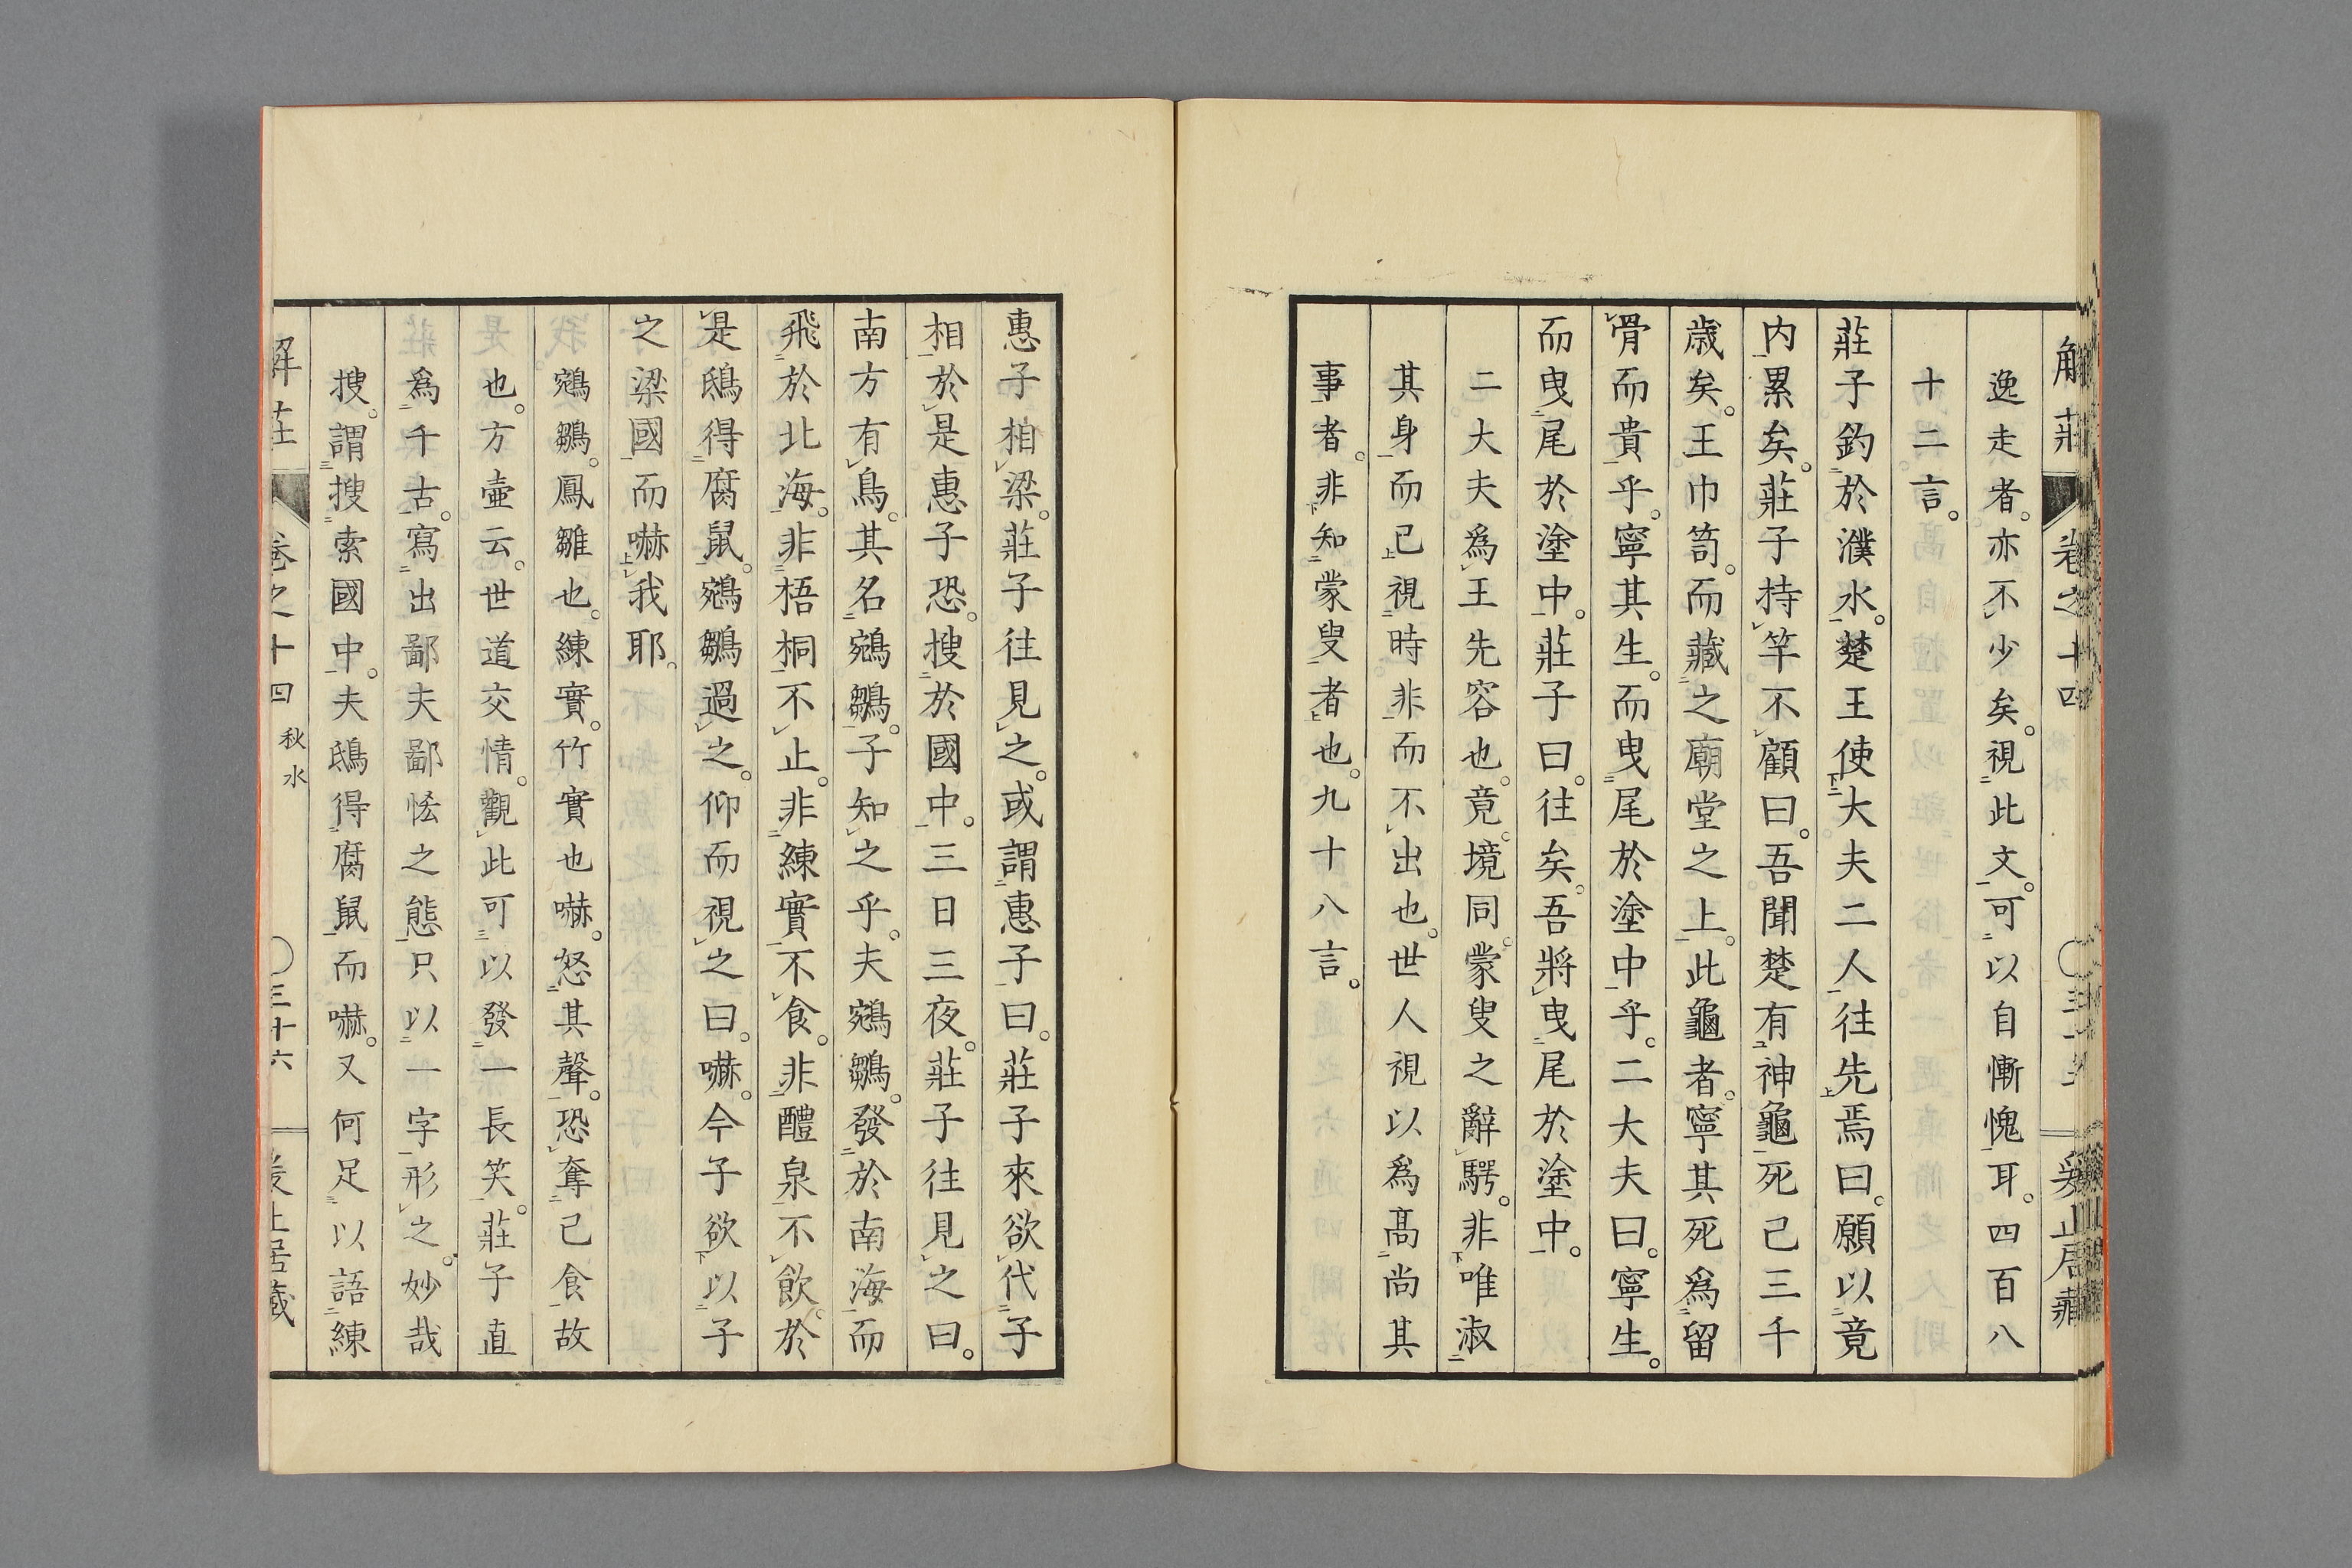 解莊 卷之十四
逸走者。亦不少矣。視此文。可以自慚愧耳。四百八
十二言。
莊子釣於濮水。楚王使大夫二人往先焉曰。願以竟
内累矣。莊子持竿不顧曰。吾聞楚有神龜死已三千
歳矣。王巾笥。而藏之廟堂之上。此龜者。寧其死爲留
骨而貴乎。寧其生。而曳尾於塗中乎。二大夫曰。寧生。
而曳尾於塗中。莊子曰。往矣。吾將曳尾於塗中。
二大夫爲王先容也。竟。境同。蒙叟之辭騁。非唯淑
其身而已視時非而不出也。世人視以爲高尚其
事者。非知蒙叟者也。九十八言。
惠子相梁。莊子往見之。或謂惠子曰。莊子來欲代子
相於是惠子恐。搜於國中。三日三夜。莊子往見之曰。
南方有鳥。其名鵷鶵。子知之乎。夫鵷鶵。發於南海而
飛於北海。非梧桐不止。非練實不食。非醴泉不飲。於
是鴟得腐鼠。鵷鶵過之。仰而視之曰。嚇。今子欲以子
之梁國而嚇我耶。
鵷鶵。鳳雛也。練實。竹實也嚇。怒其聲。恐奪己食故
也。方壷云。世道交情。觀此可以發一長笑。莊子直
爲千古。寫出鄙夫鄙恡之態只以一字形之。妙哉
搜。謂搜索國中。夫鴟得腐鼠而嚇。又何足以語練
解莊 卷之十四 秋水 三十六